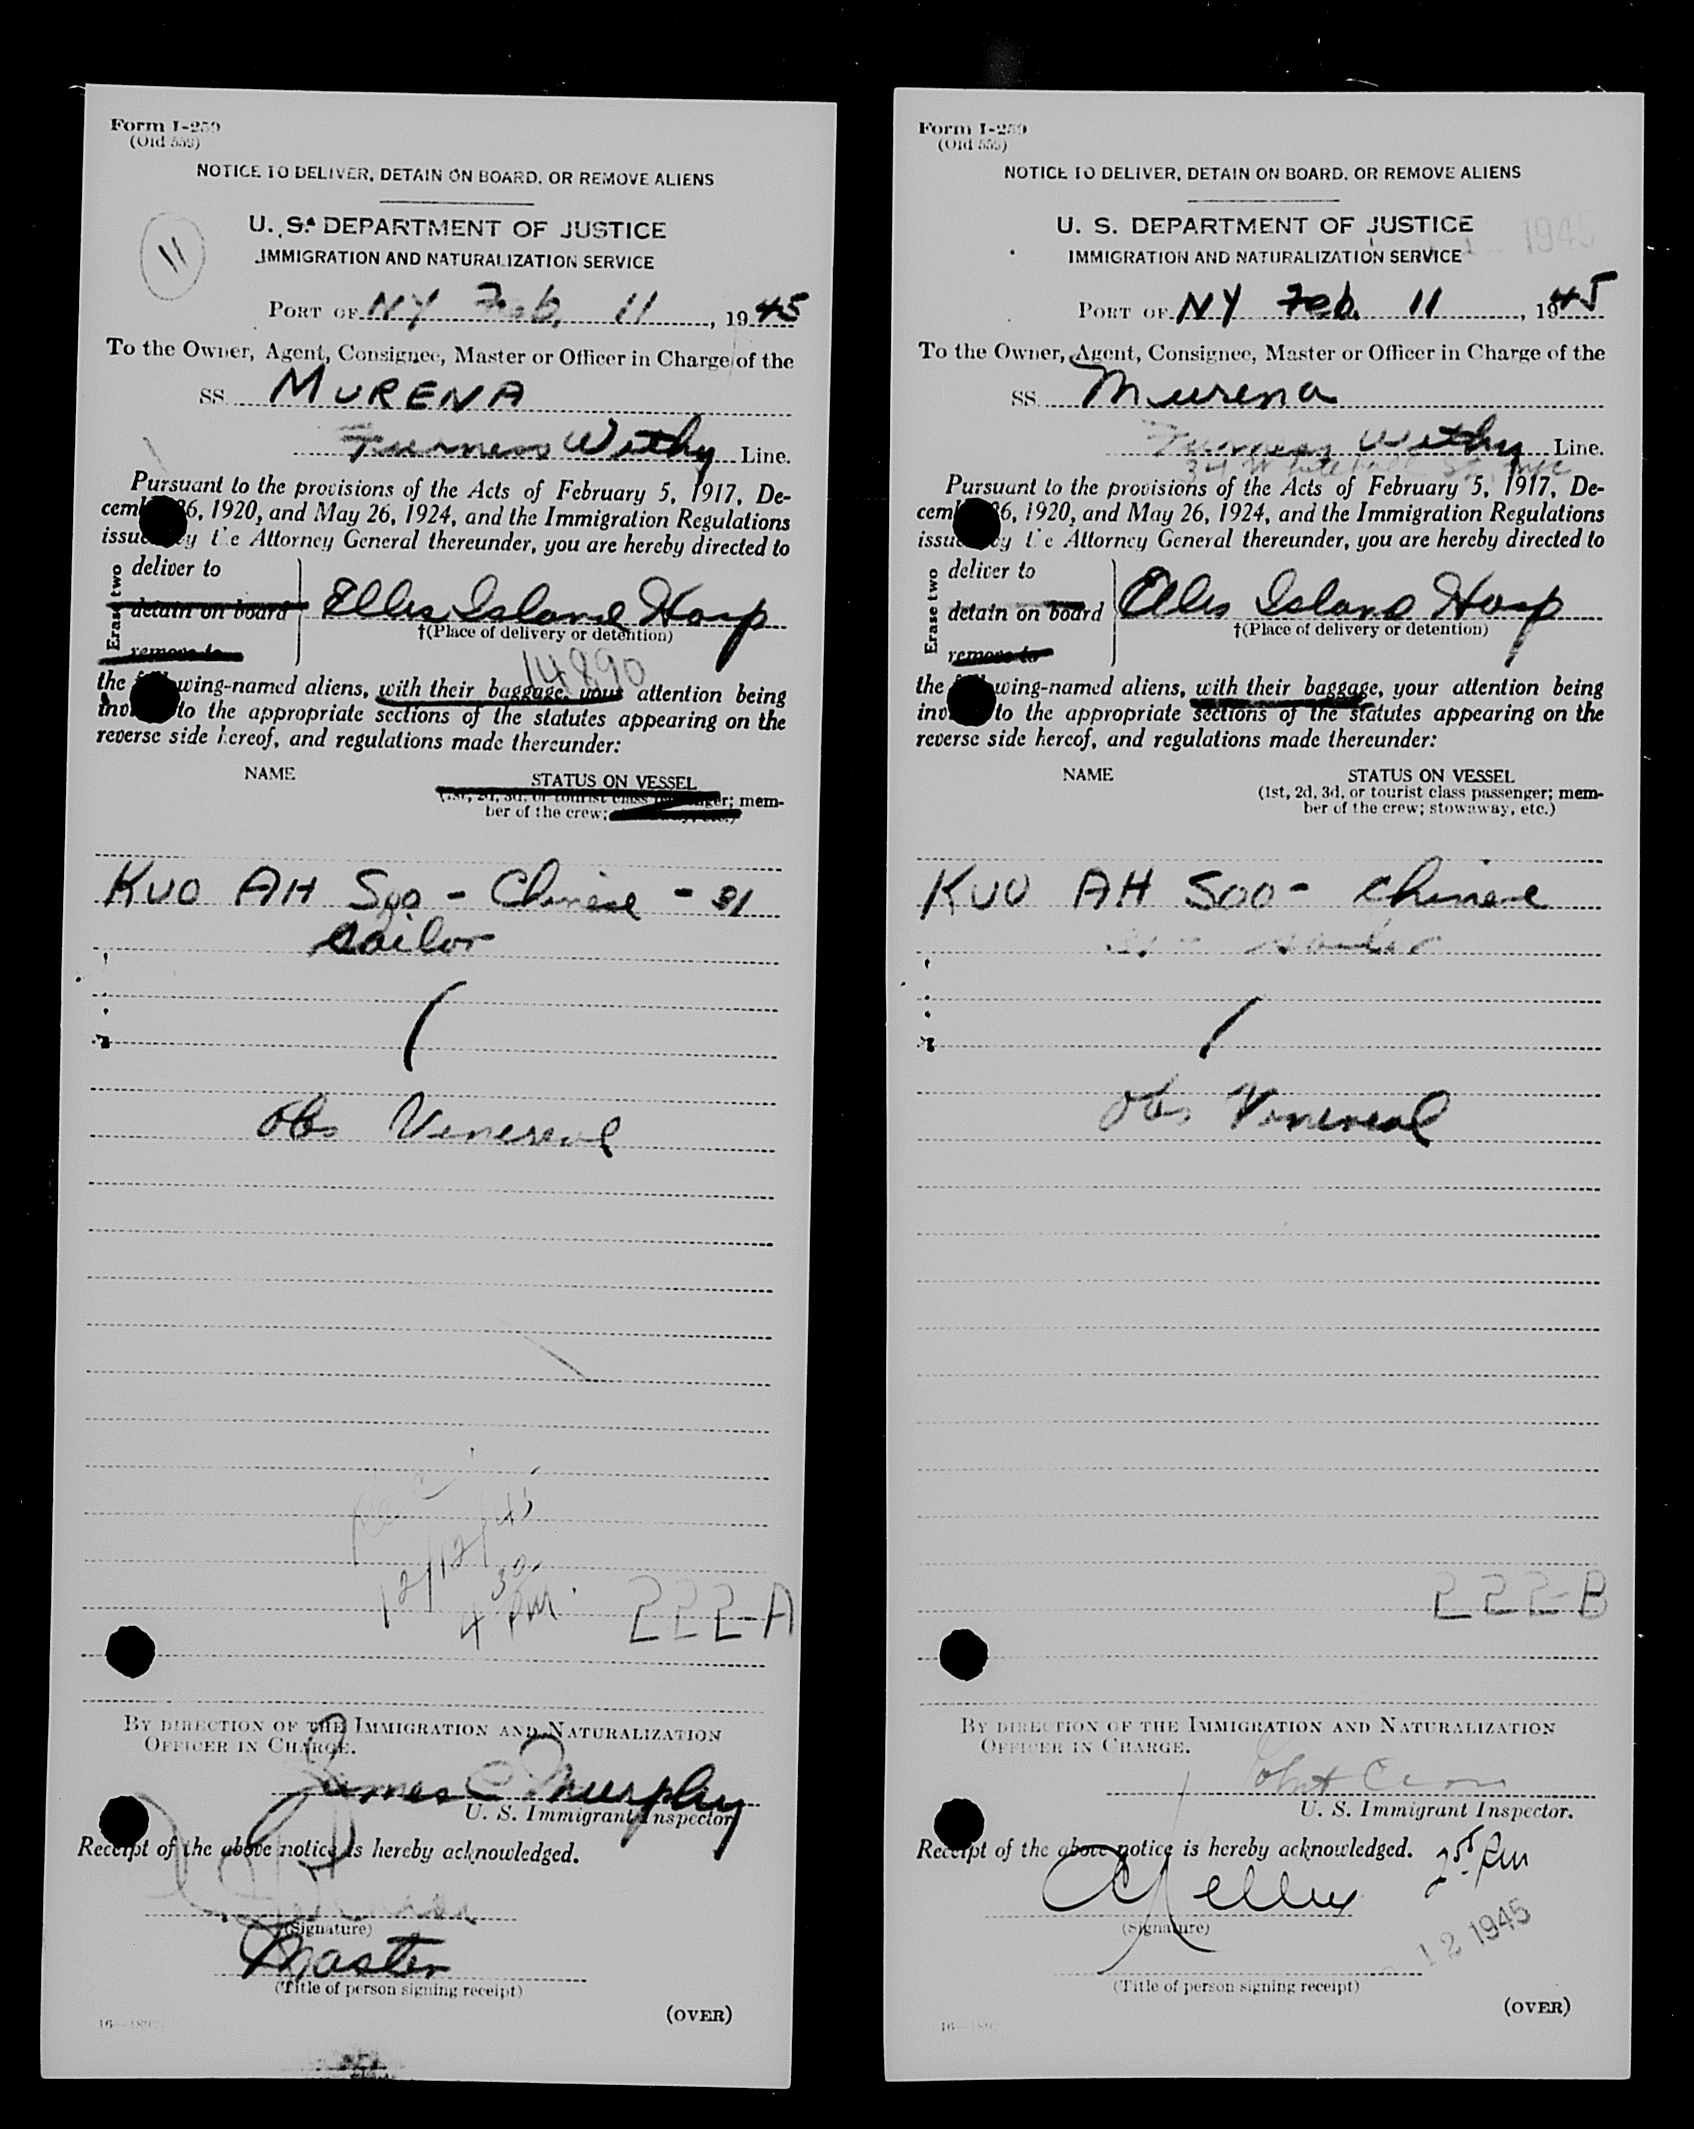 Form I-259
(Old 559)
NOTICE TO DELIVER, DETAIN ON BOARD, OR REMOVE ALIENS
U. S. DEPARTMENT OF JUSTICE
IMMIGRATION AND NATURALIZATION SERVICE
11
PORT OF NY Feb. 11, 1945
To the Owner, Agent, Consignee, Master or Officer in Charge of the
SS MURENA
Furness Withy Line.
Pursuant to the provisions of the Acts of February 5, 1917, De-
cember 26, 1920, and May 26, 1924, and the Immigration Regulations
issued by the Attorney General thereunder, you are hereby directed to
Erase two
deliver to
detain on board Ellis Island Hosp
†(Place of delivery or detention)
remove to
14890
the following-named aliens, with their baggage, your attention being
invited to the appropriate sections of the statutes appearing on the
reverse side hereof, and regulations made thereunder:
NAME STATUS ON VESSEL
(1st, 2d, 3d, or tourist class passenger; mem-
ber of the crew; stowaway, etc.)
KUO AH Soo - Chinese - 31
Sailor
Obs Venereal
12/12/45
4 30 PM
222-A
BY DIRECTION OF THE IMMIGRATION AND NATURALIZATION
OFFICER IN CHARGE.
James C Murphy
U. S. Immigrant Inspector.
Receipt of the above notice is hereby acknowledged.
(Signature)
Master
(Title of person signing receipt)
(OVER)
Form I-259
(Old 559)
NOTICE TO DELIVER, DETAIN ON BOARD, OR REMOVE ALIENS
U. S. DEPARTMENT OF JUSTICE
1945
IMMIGRATION AND NATURALIZATION SERVICE
PORT OF NY Feb. 11, 1945
To the Owner, Agent, Consignee, Master or Officer in Charge of the
SS Murena
Furness Withy Line.
34 Whitehall St., NYC
Pursuant to the provisions of the Acts of February 5, 1917, De-
cember 26, 1920, and May 26, 1924, and the Immigration Regulations
issued by the Attorney General thereunder, you are hereby directed to
Erase two
deliver to
detain on board Ellis Island Hosp
†(Place of delivery or detention)
remove to
the following-named aliens, with their baggage, your attention being
invited to the appropriate sections of the statutes appearing on the
reverse side hereof, and regulations made thereunder:
NAME STATUS ON VESSEL
(1st, 2d, 3d, or tourist class passenger; mem-
ber of the crew; stowaway, etc.)
KUO AH SOO - Chinese
31 - Sailor
Obs Venereal
222-B
BY DIRECTION OF THE IMMIGRATION AND NATURALIZATION
OFFICER IN CHARGE.
U. S. Immigrant Inspector.
Receipt of the above notice is hereby acknowledged.
(Signature)
12 1945
(Title of person signing receipt)
(OVER)